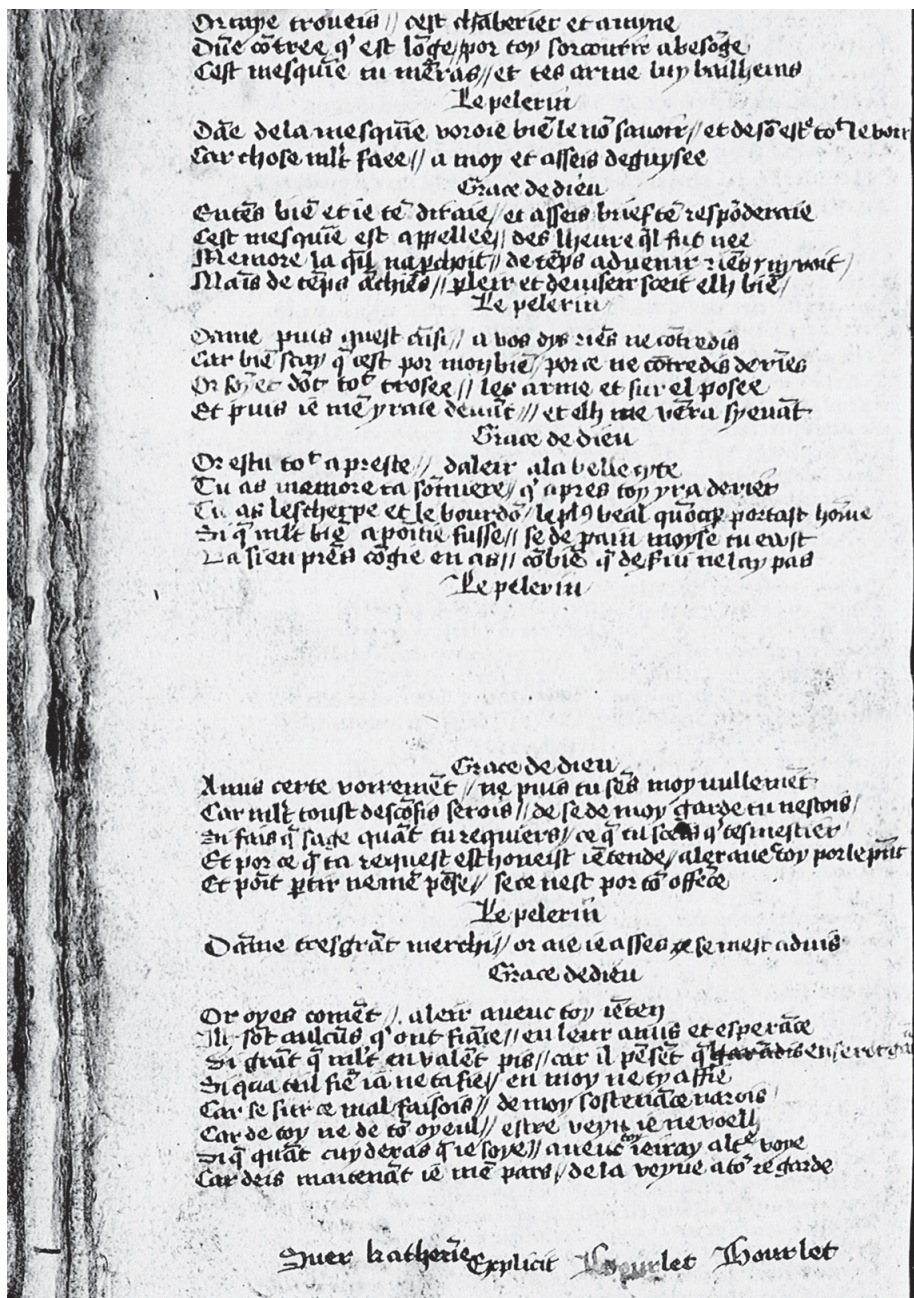 Or taye troueis // cest chāberier et amyne
Dūe cōtree q' est lōge // por toy sorcourir a besōge
Cest mesquīe tu mēras // et tes arme luy bailheins
Le pelerin
Dāe de la mesquīe voroie biē le nō savoir // et de sō est tot le voir
Car chose mlt faee // a moy et asseis deguysee
Grace de dieu
Entēs biē et ie tē ditaie // et asseis brief tē respōderaie
Cest mesquie est appellee // des lheure ql fut nee
Memore la qil naꝑchoit // de tēps advenir riēs ny voit /
Mais de tēps āchiēs // pleir et deviseir sceit elh biē /
Le pelerin
Dame puis quest ēnsi // a vos dys riēs ne cōtredis
Car biē say q̄ cest por mon biē / por ce ne cōtredis de riēs
Or soyet dōt tot trosee // les arme et sur el posee
Et puis ie mē yraie devāt // et elh me vēra syevāt
Grace de dieu
Or es tu tot apreste // daleir a la belle cyte
Tu as memore ta sōmiere // q' apres toy yra derier
Tu as lescherpe et le bourdō / le pl9 beal quōcqꝫ portast hōme
Si q' mlt biē apointie fusse // se de pain moyse tu ewst
La sien prēs cōgie en as // cōbiē q' deſſiu ne lay pas
Le pelerin
Grace de dieu
Amis certe vorremēt // ne puis tu sēs moy nullemēt
Car mlt toust descōfis serois // de se de moy garde tu nestois /
Si fais q̄ sage quāt tu requiers // ce q̄ tu sceis q' tes mestier
Et por ce q̄ ta request est honeist iētende / aler avec toy por le pnt
Et poīt ꝑtir ne mē pēse // se ce nest por tō offēce
Le pelerin
Dāme tresgrāt merchi // or aie ie asses se mest advis
Grace de dieu
Or oyes comēt // aleir aveuc toy iētē
Ill sōt aulcūs q' ont fiāce // en leur amis et esperāce
Si grāt q̄ mlt en valēt pis // car il pēsēt q̄
Si qua teil fiē ia ne ta fie // en moy ne ty affie
Car se sur ce mal faisois // de moy sostenāce narois
Car de toy ne de tō oyeul // estre veyu ie ne voelh
Si q̄ quāt cuyderas q̄ ie soye // aveuc toy ie iray alt voye
Car deis maitenāt ie mē pars / de la veyue a tō regarde
Suer katherīe Explicit Bourlet Bourlet